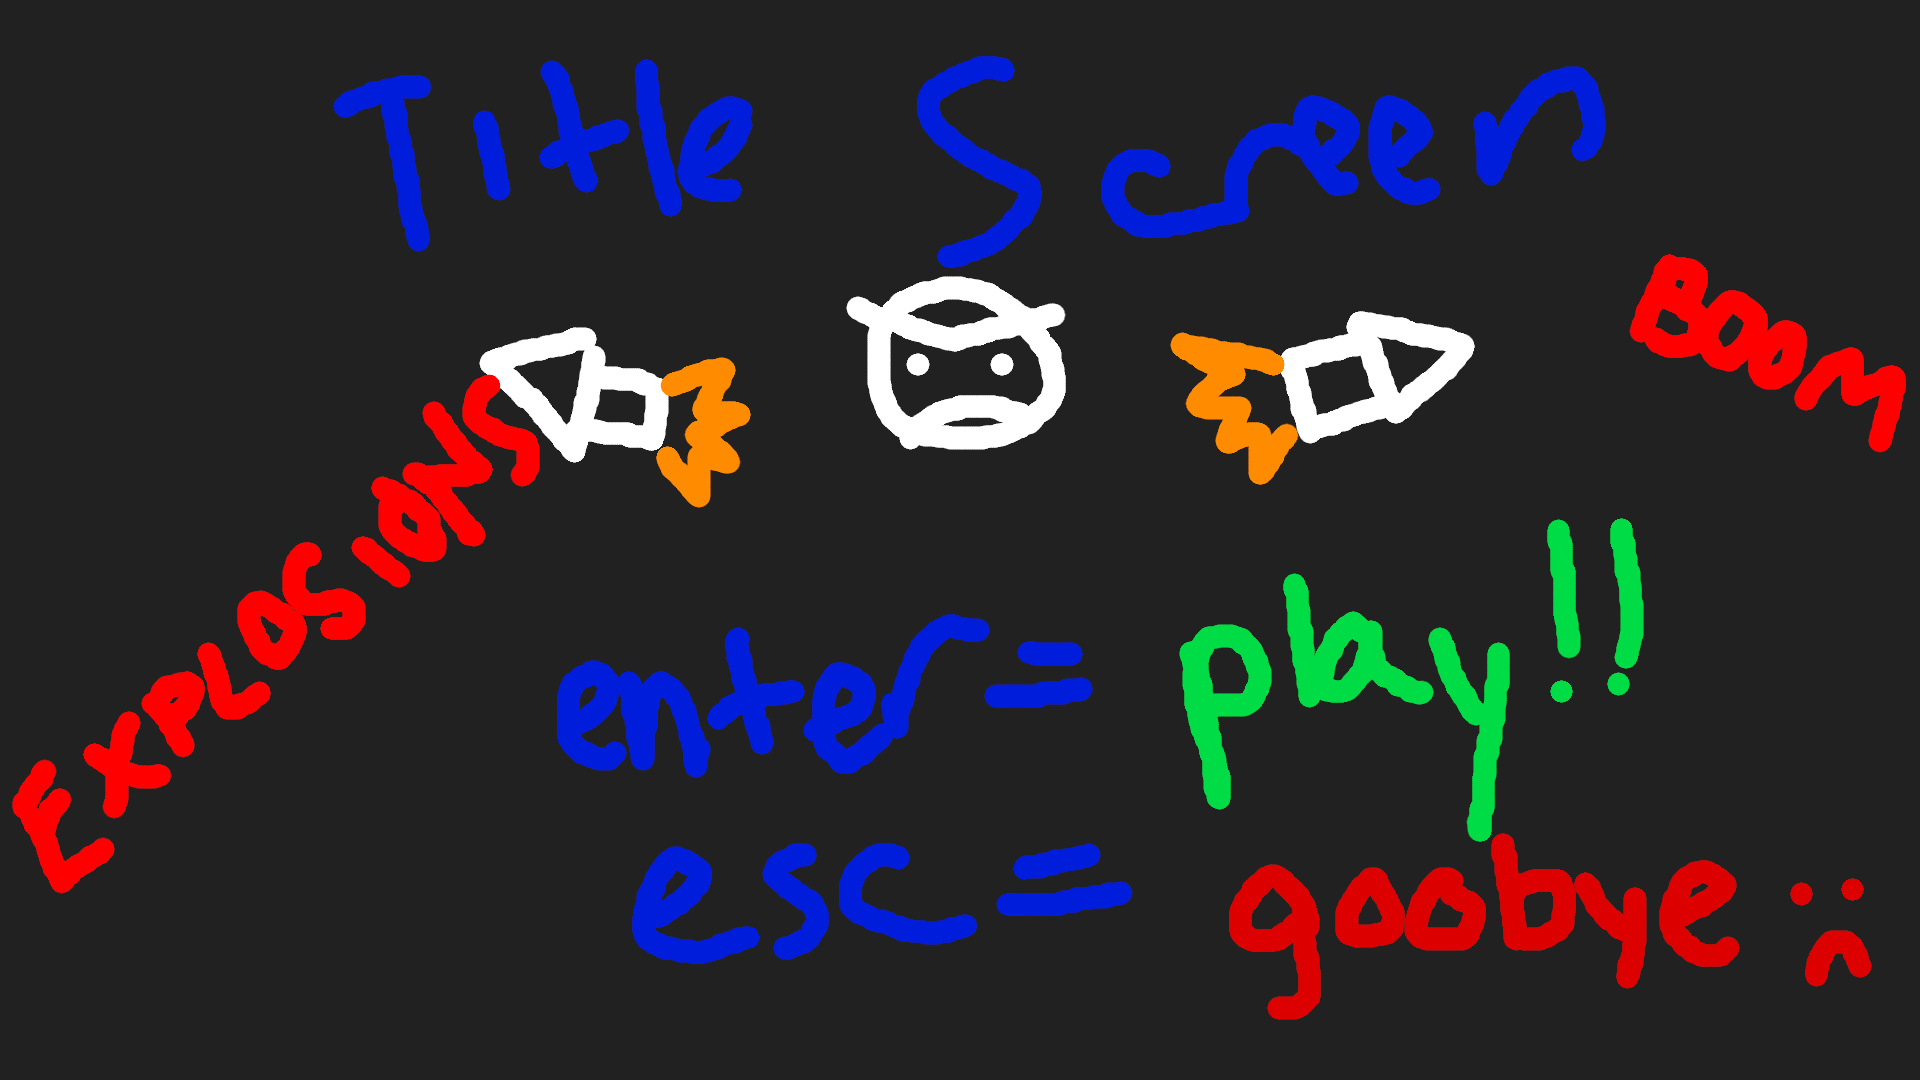 Title Screen
BOOM
EXPLOSIONS
enter = play!!
esc = goobye :(